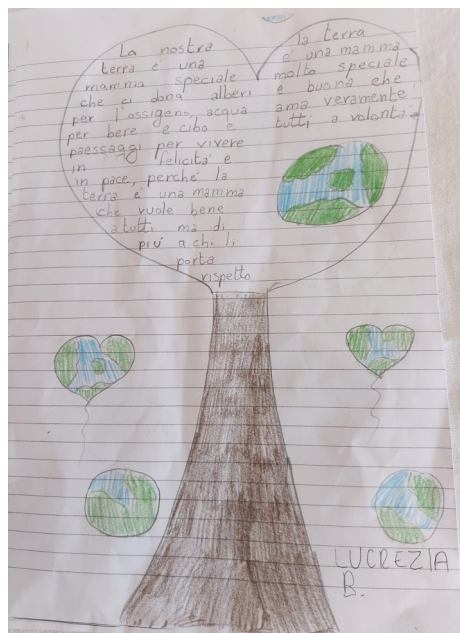 La nostra
terra è una
mamma speciale
che ci dona alberi
per l'ossigeno, acqua
per bere e cibo e
paessaggi per vivere
in felicità e
in pace, perché la
terra è una mamma
che vuole bene
a tutti ma di
più a chi li
porta
rispetto
la terra
è una mamma
molto speciale
e buona che
ama veramente
tutti a volontà
LUCREZIA
B.